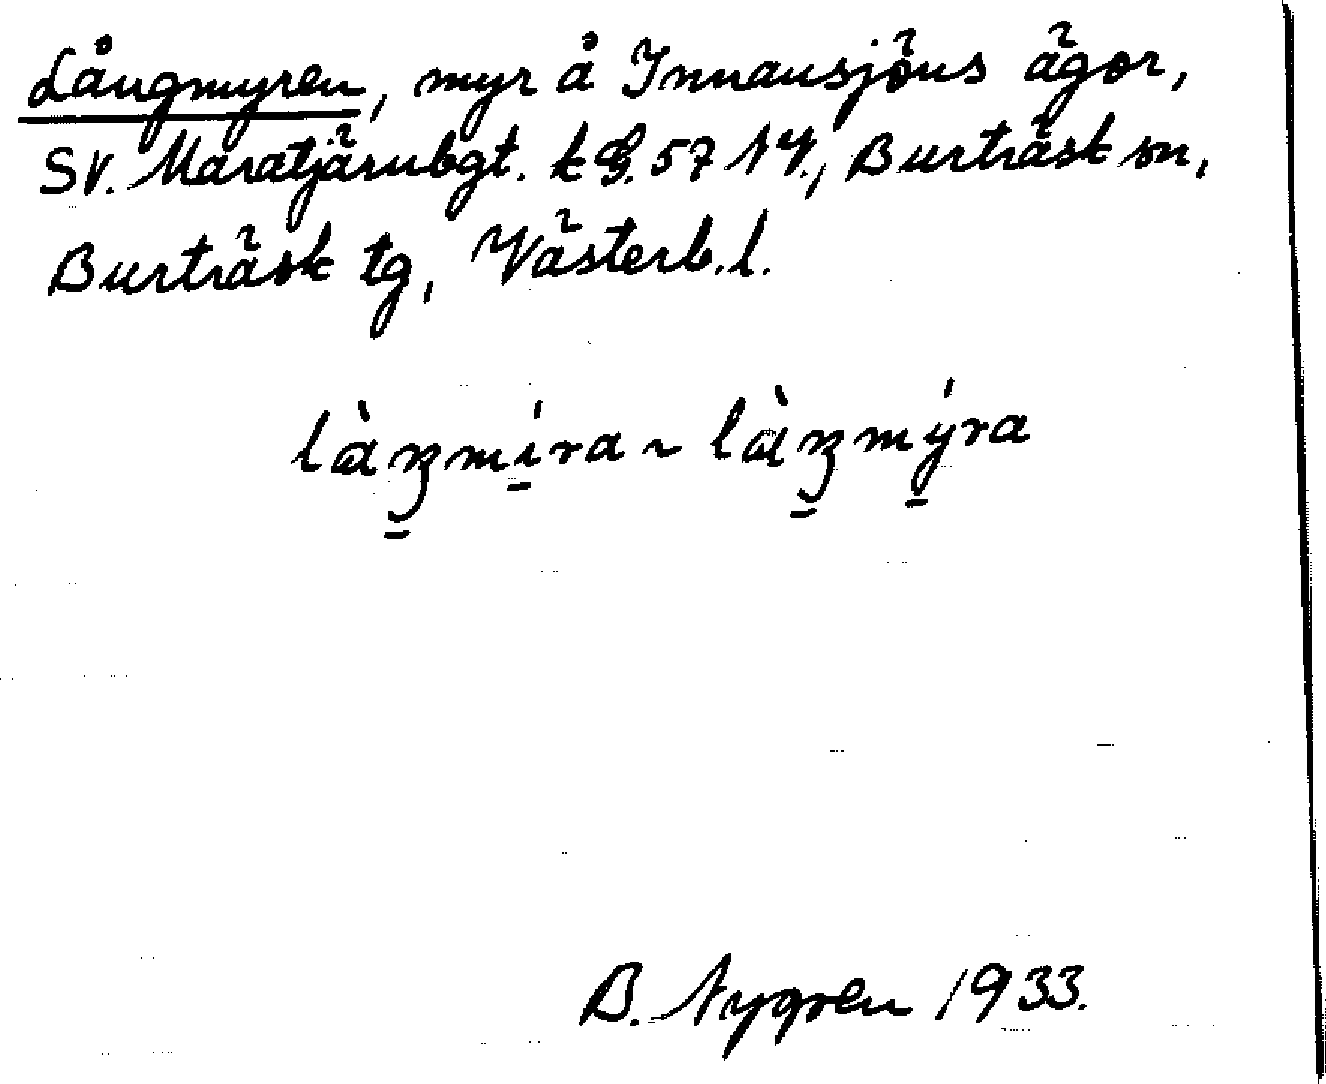 Långmyren, myr å Innansjöns ägor,
SV. Maratjärnbgt. k G. 57 14., Burträsk sn,
Burträsk tg, Västerb.l.
làŋmíra ~ làŋmýra
B. Nygren 1933.